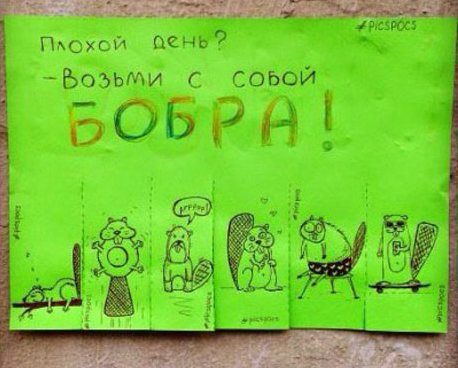 #PICSPOCS
Плохой день?
-Возьми с собой
БОБРА!
#picspocs
Арррр!
#picspocs
#picspocs
#picspocs
#picspocs
#picspocs